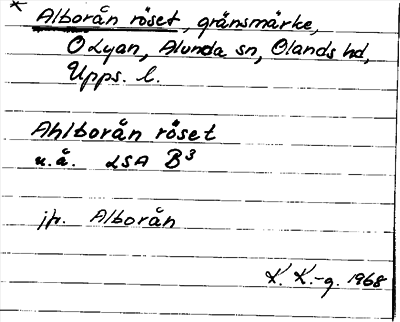 Alborån röset, gränsmärke,
O Lyan, Alunda sn, Olands hd,
Upps. l.
Ahlborån röset
u.å. LSA B³
jfr. Alborån
K. K.-g. 1968